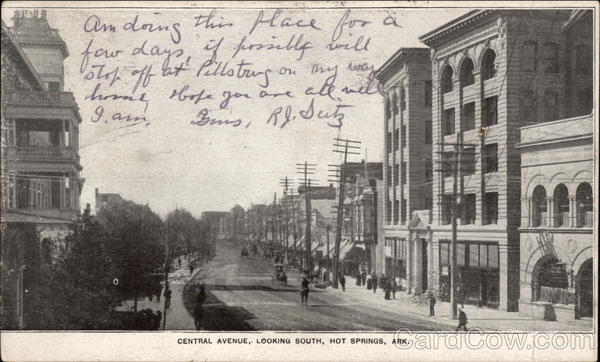 Am doing this Place for a
few days, if possibly will
stop off at Pittsburg on my way
home, Hope you are all well
I am, Yours, R.J. Seitz
CENTRAL AVENUE, LOOKING SOUTH, HOT SPRINGS, ARK.
CardCow.com